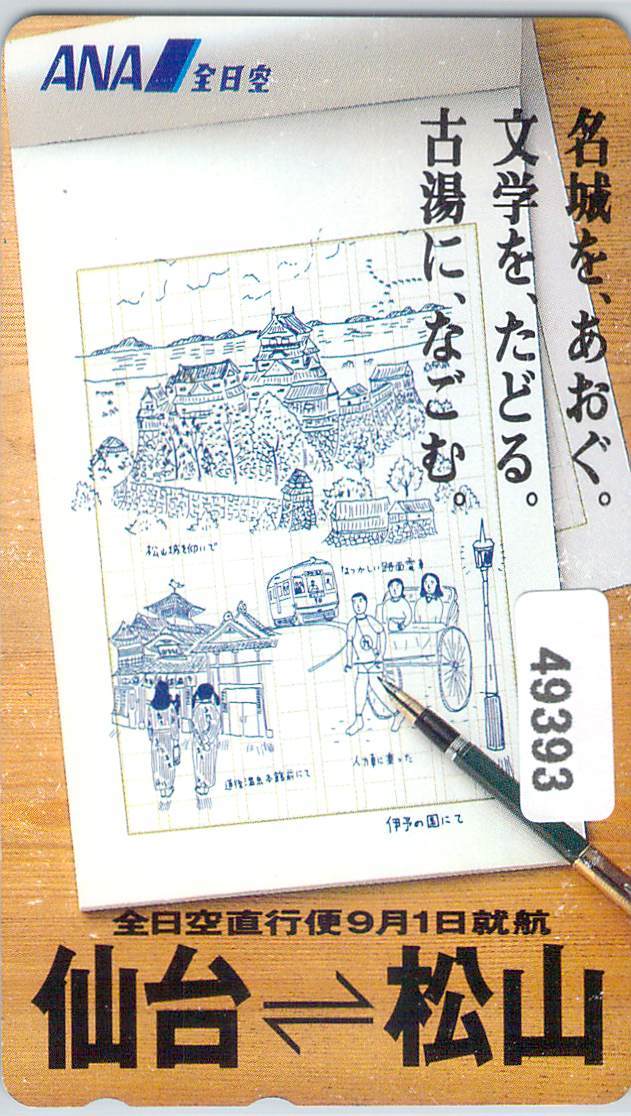 ANA 全日空
名城を、あおぐ。
文学を、たどる。
古湯に、なごむ。
松山城を仰いで
なつかしい路面電車
道後温泉本館前にて
人力車に乗った
伊予の国にて
49393
全日空直行便9月1日就航
仙台⇌松山